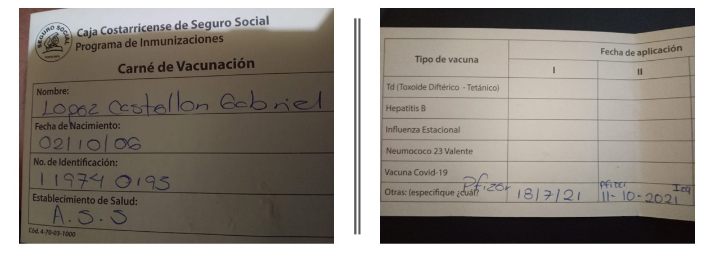 SEGURO SOCIAL
Caja Costarricense de Seguro Social
Programa de Inmunizaciones
Carné de Vacunación
Nombre:
Lopez Castellon Gabriel
Fecha de Nacimiento:
02/10/06
No. de Identificación:
11974 0195
Establecimiento de Salud:
A.S.S
Cód. 4-70-03-1000
Tipo de vacuna
Fecha de aplicación
I
II
Td (Toxoide Diftérico - Tetánico)
Hepatitis B
Influenza Estacional
Neumococo 23 Valente
Vacuna Covid-19
Otras: (especifique ¿cuál? Pfizer 18/7/21 Pfizer 11-10-2021 Izq